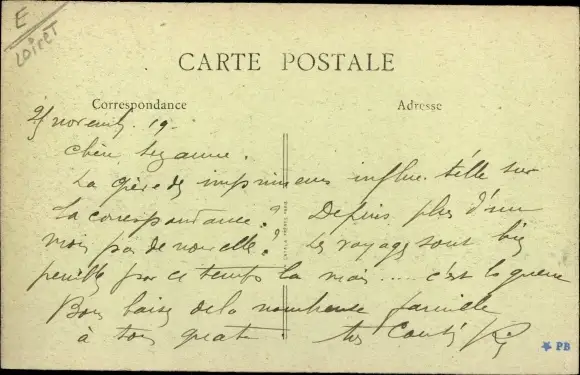 E
Loiret
CARTE POSTALE
Correspondance Adresse
novemb. 19-
chère Suzanne.
La grève des imprimeurs influe t'elle sur
la correspondance? Depuis plus d'un
mois pas de nouvelle? Les voyages sont bien
pénible par ce temps la mais ..... c'est la guerre
Bons baisers de la nombreuse famille
à tous quatre
* PB